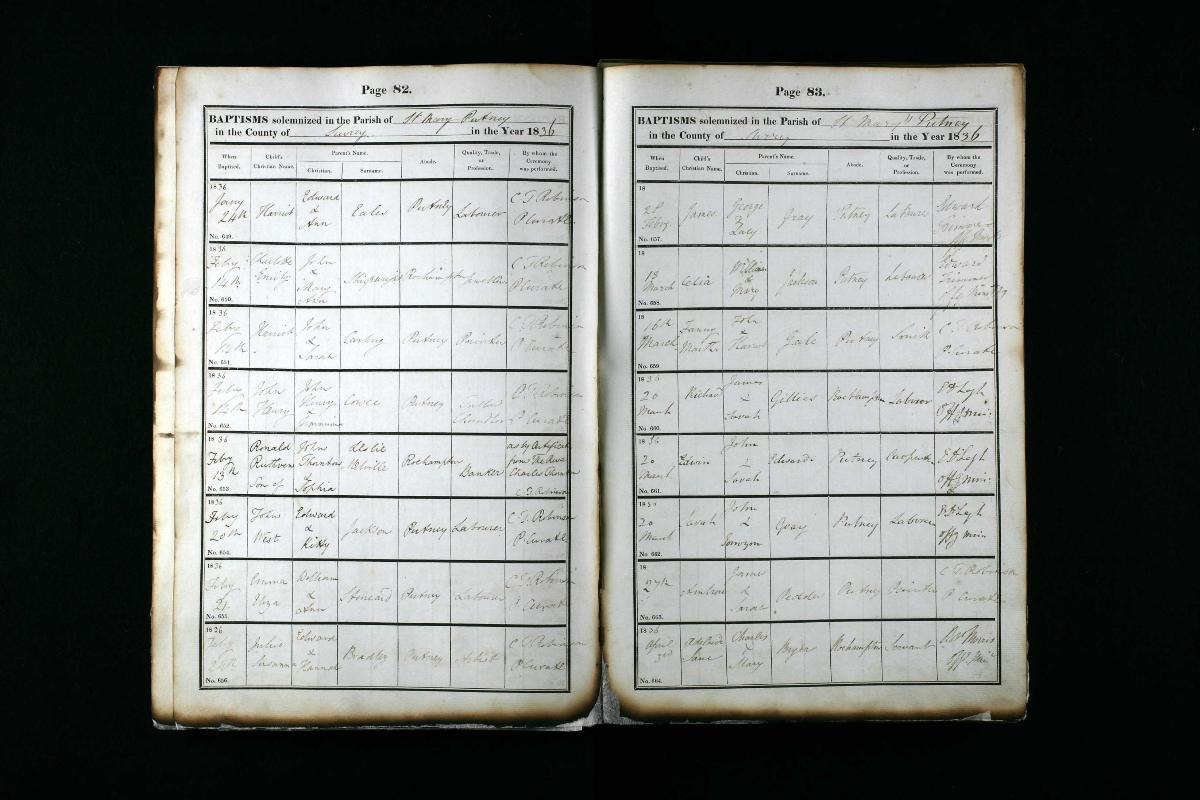 Page 82.
BAPTISMS solemnized in the Parish of St Mary Putney
in the County of Surrey in the Year 1836
When Baptised. Child's Christian Name. Parent's Name. Christian. Surname. Abode. Quality, Trade, or Profession. By whom the Ceremony was performed.
1836 Jany 24th Harriet Edward & Ann Eales Putney Labourer C T Robinson P Curate
No. 649.
1836 Feby 14th Charlotte Emily John & Mary Ann Roehampton C T Robinson P Curate
No. 650.
1836 Feby 14th Harriet John & Sarah Carling Putney Painter C T Robinson P Curate
No. 651.
1836 Feby 14th John Henry John Henry & Cowee Putney C T Robinson P Curate
No. 652.
1836 Feby 13th Ronald Ruthven Son of John Thornton Sophia Leslie Melville Roehampton Banker as by Certificate from The Revd Charles Thornton C T Robinson
No. 653
1836 Feby 20th John West Edward & Kitty Jackson Putney Labourer C T Robinson P Curate
No. 654.
1836 Feby 21 Emma Eliza William & Ann Stoneard Putney Labourer C T Robinson P Curate
No. 655.
1836 Feby 24th Julius Susanna Edward & Hannah Bradley Putney Artist C T Robinson P Curate
No. 656.
Page 83.
BAPTISMS solemnized in the Parish of St Mary Putney
in the County of Surrey in the Year 1836
When Baptised. Child's Christian Name. Parent's Name. Christian. Surname. Abode. Quality, Trade, or Profession. By whom the Ceremony was performed.
18 28 Feby James George & Lucy Gray Putney Labourer Edward
No. 657.
18 13 March Celia William & Mary Jackson Putney Labourer Edward
No. 658.
18 16th March Fanny Martha John & Harriet Gale Putney Smith C T Robinson P Curate
No. 659
1836 20 March Richard James & Sarah Gillies Roehampton Laborer
No. 660.
1836 20 March Edwin John & Sarah Edwards Putney Carpenter
No. 661.
1836 20 March Sarah John & Gray Putney Laborer
No. 662.
18 27th Ambrose James & Sarah Pedder Putney Painter C T Robinson P Curate
No. 663.
1836 April 3rd Adelaide Jane Charles & Mary Bryer Roehampton Servant Morris
No. 664.